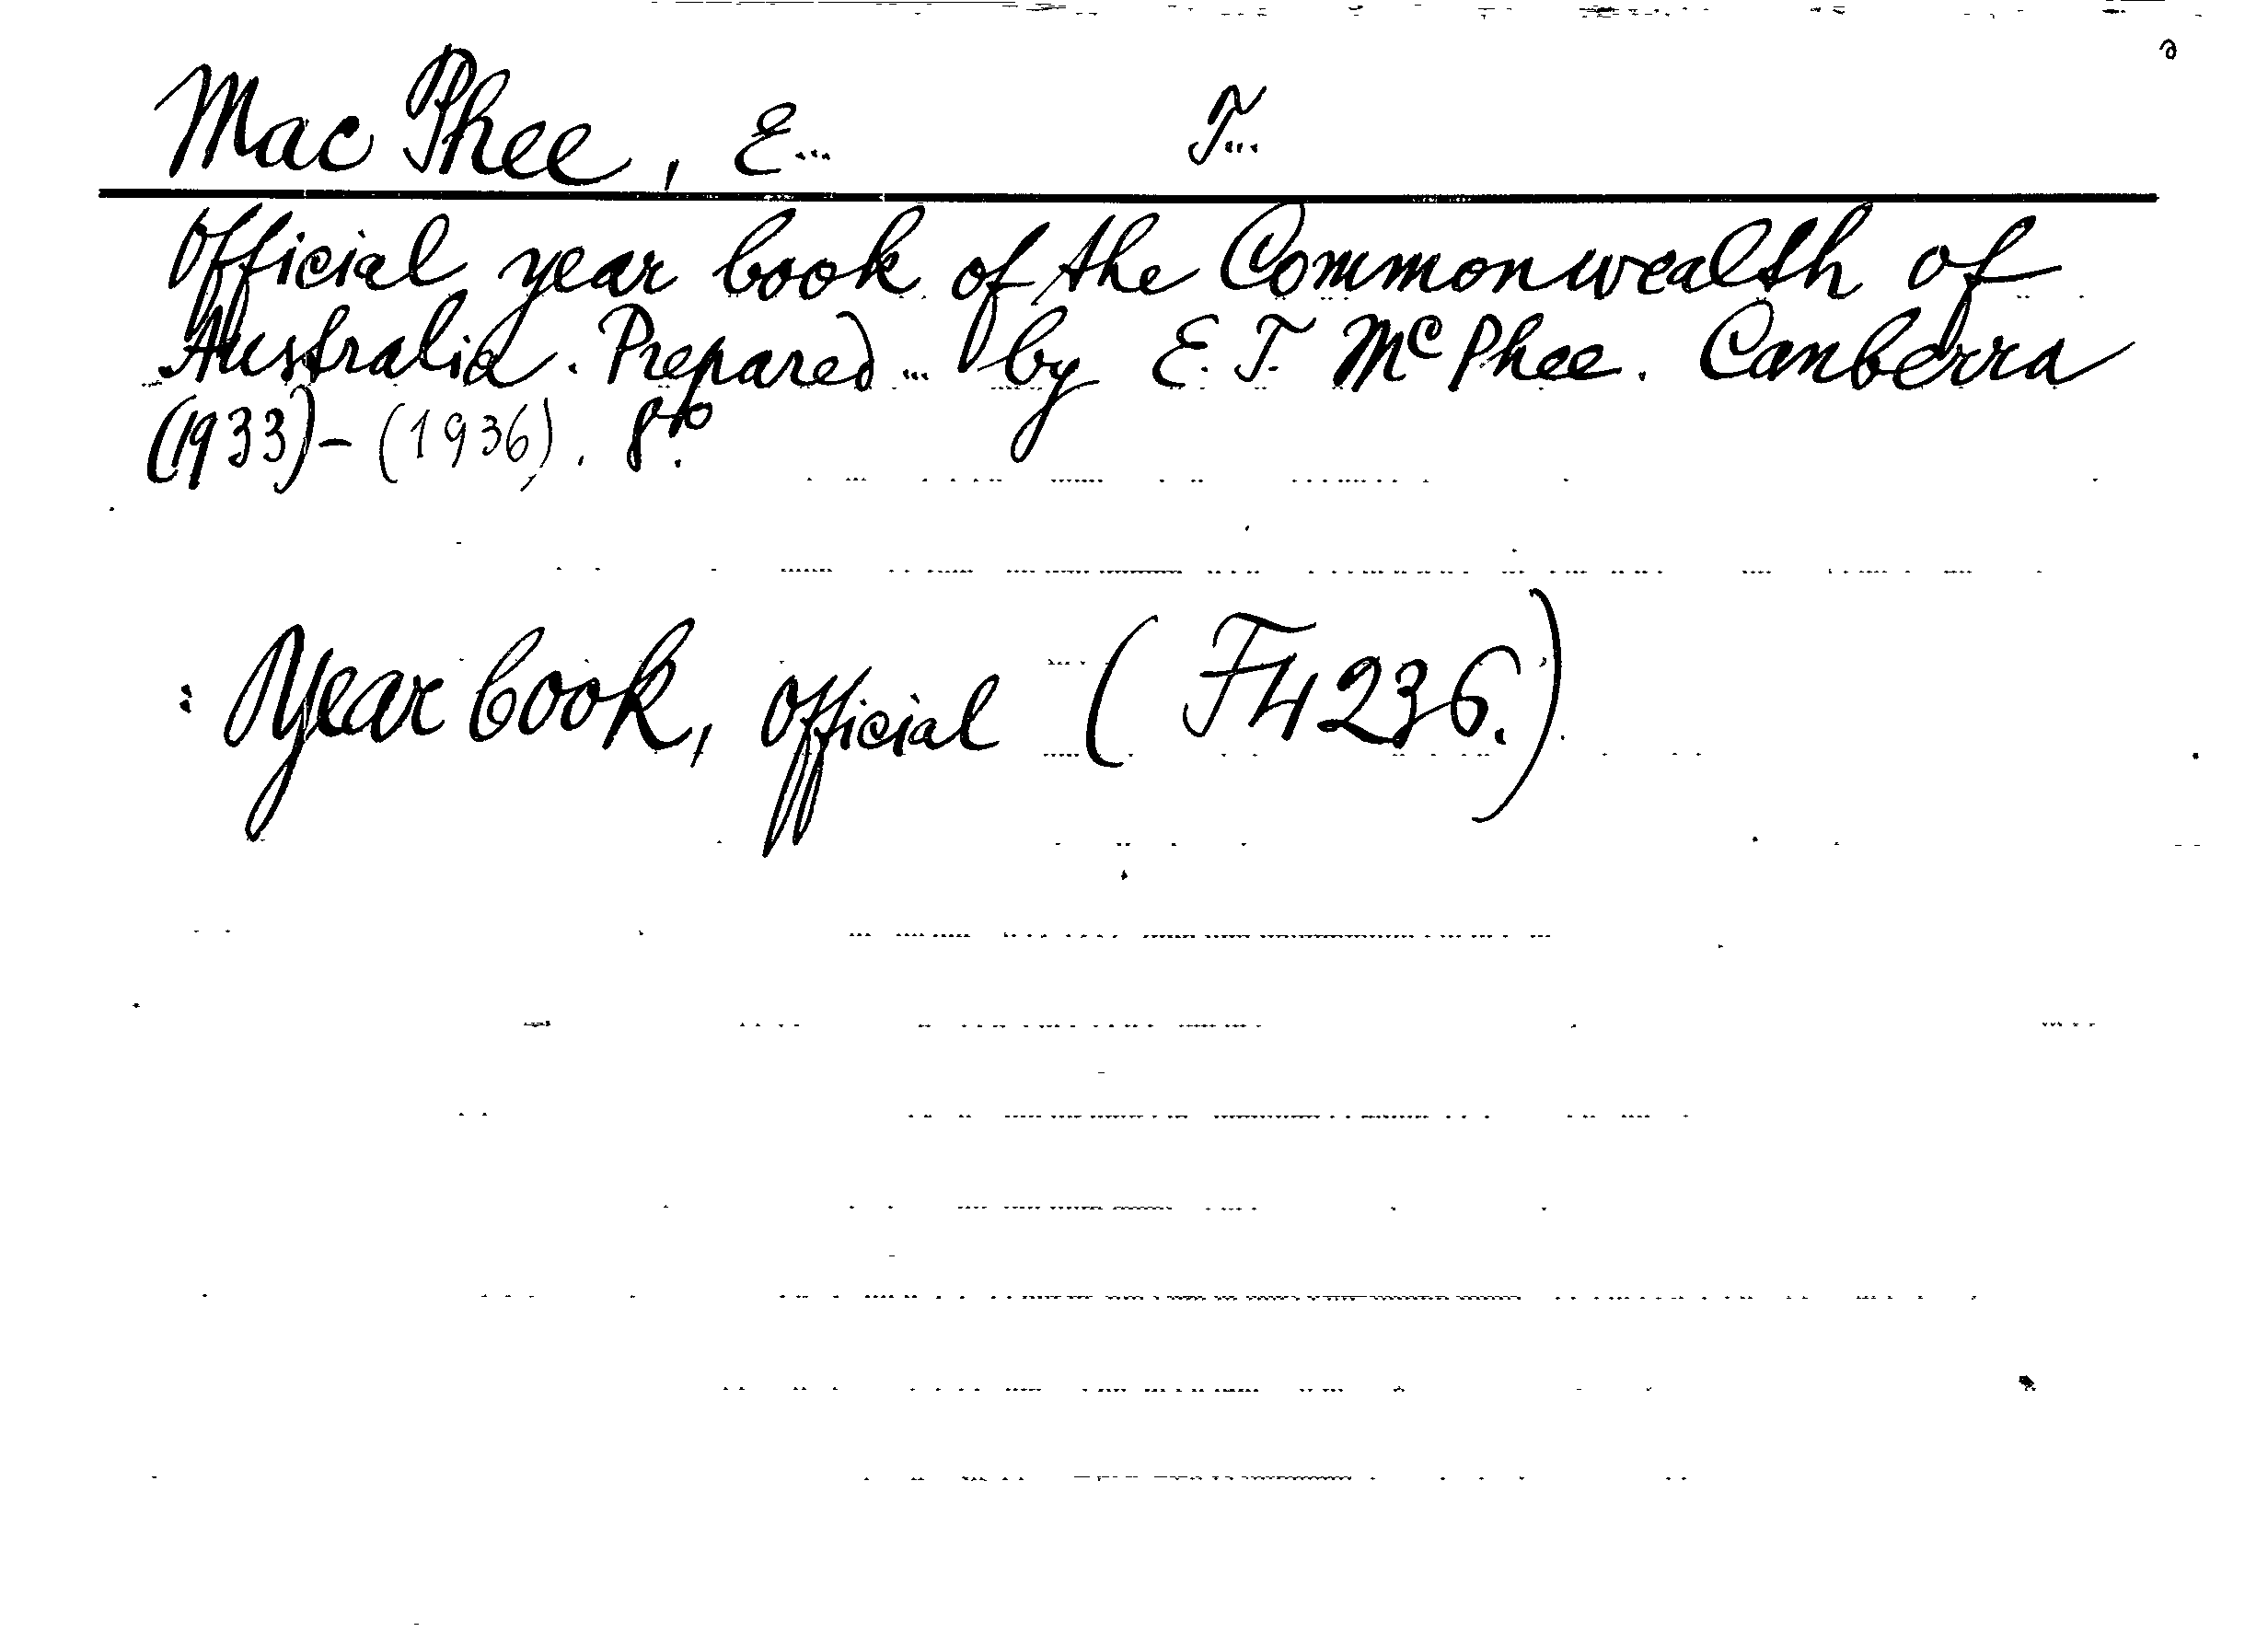 Mac Phee, E... T...
Official year book of the Commonwealth of
Australia. Prepared... by E. T. McPhee. Canberra
(1933)-(1936). 8vo.
: Year book, official (F4236.)